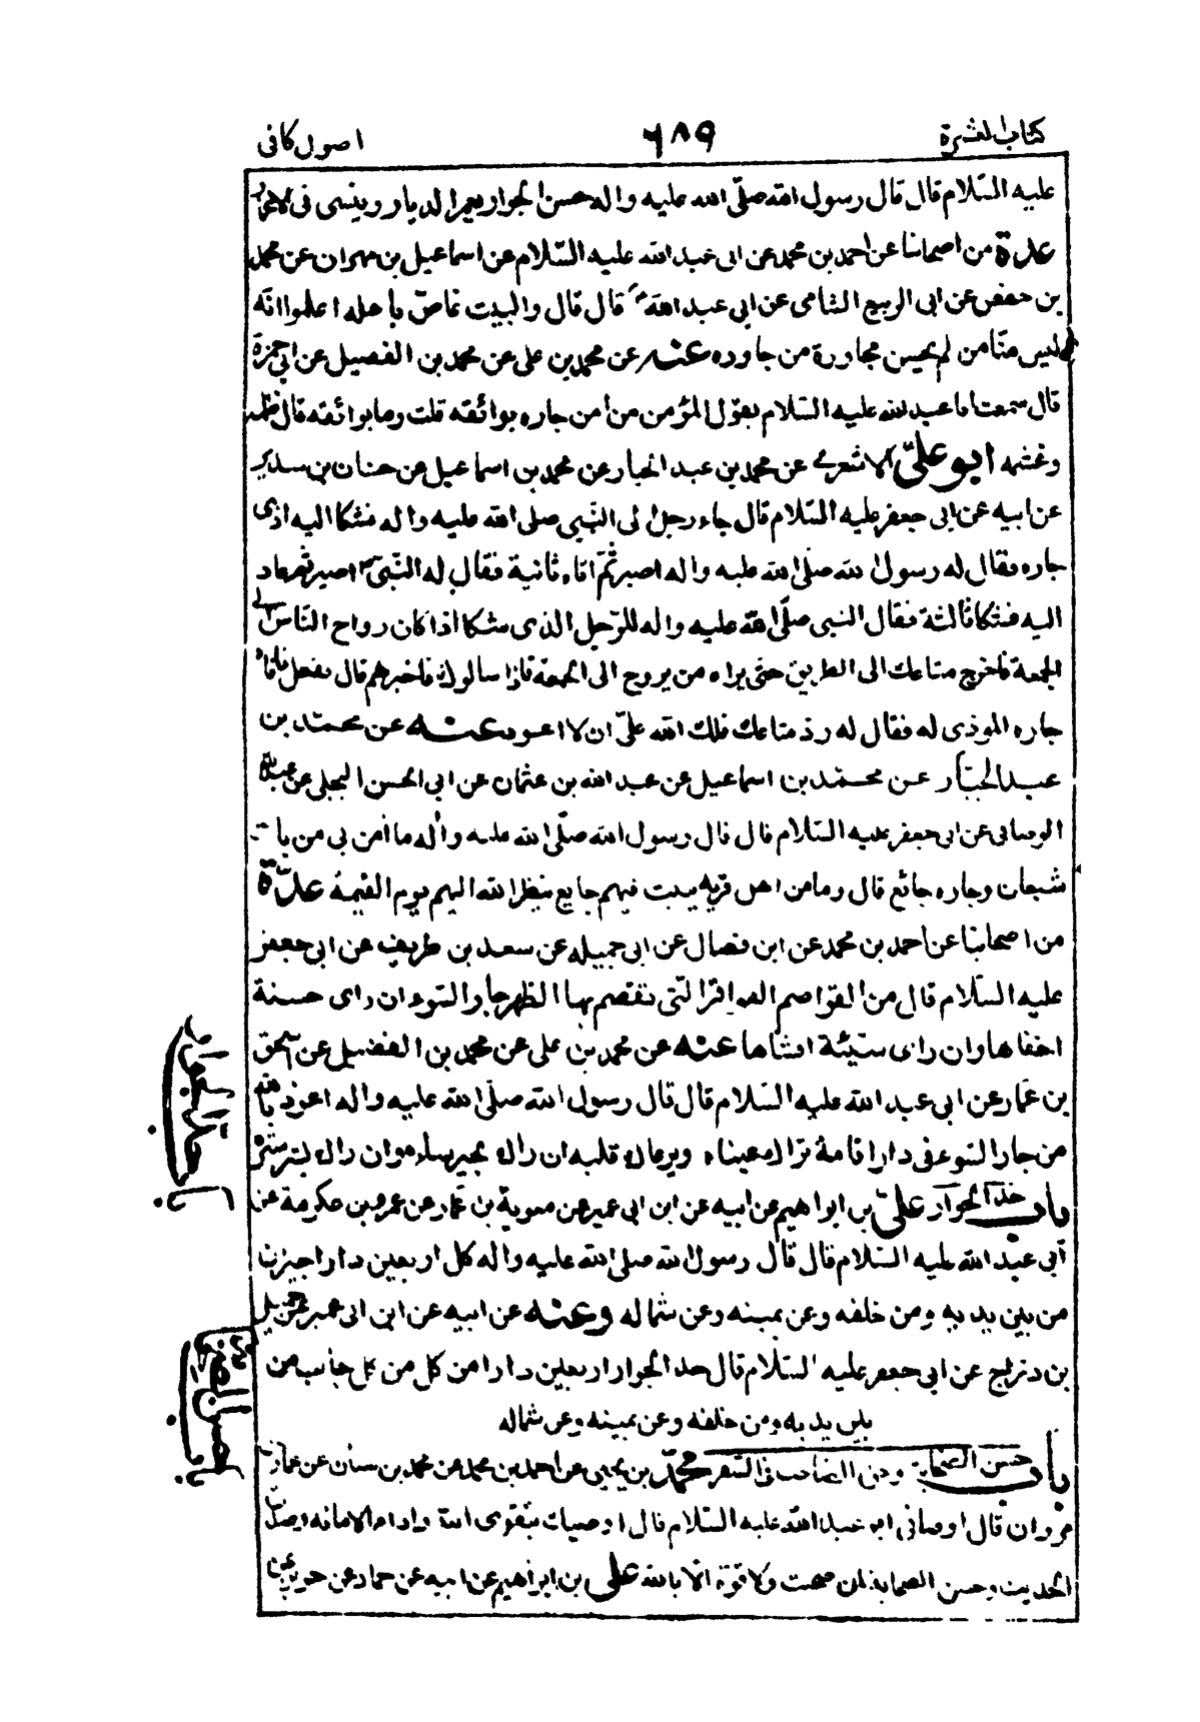 كتاب العشرة ٦٨٩ اصول كافى
عليه السّلام قال قال رسول الله صلّى الله عليه واله حسن الجوار يعمر الديار وينسى فى الاعمار
عدة من اصحابنا عن احمد بن محمد عن ابى عبد الله عليه السّلام عن اسماعيل بن مهران عن محمد
بن حفص عن ابى الربيع الشامى عن ابي عبد الله ع قال قال والبيت غاصّ باهله اعلموا انّه
ليس منّا من لم يحسن مجاورة من جاوره عنه عن محمد بن على عن محمد بن الفضيل عن ابي حمزة
قال سمعت ابا عبد الله عليه السّلام يقول المؤمن من امن جاره بوائقه قلت وما بوائقه قال ظلمه
وغشمه ابو علىّ الاشعرى عن محمد بن عبد الجبار عن محمد بن اسماعيل عن حنان بن سدير
عن ابيه عن ابى جعفر عليه السّلام قال جاء رجل الى النّبي صلى الله عليه واله فشكا اليه اذى
جاره فقال له رسول الله صلى الله عليه واله اصبر ثمّ اتاه ثانية فقال له النّبى ص اصبر ثم عاد
اليه فشكا ثالثة فقال النبى صلّى الله عليه واله للرّجل الذى شكا اذا كان رواح النّاس الى
الجمعة فاخرج متاعك الى الطريق حتّى يراه من يروح الى الجمعة فاذا سالوك فاخبرهم قال ففعل فاتاه
جاره الموذى له فقال له ردّ متاعك فلك الله علىّ ان لا اعود عنه عن محمّد بن
عبد الجبّار عن محمّد بن اسماعيل عن عبد الله بن عثمان عن ابى الحسن البجلى عن عبيد الله
الوصافى عن ابى جعفر عليه السّلام قال قال رسول الله صلّى الله عليه واله ما امن بى من بات
شبعان وجاره جائع قال وما من اهل قرية يبيت فيهم جايع ينظر الله اليهم يوم القيمة عدّة
من اصحابنا عن احمد بن محمد عن ابن فضال عن ابى جميله عن سعد بن طريف عن ابى جعفر
عليه السّلام قال من القواصم الفواقر الّتى تقصم بها الظهر جار السّوء ان راى حسنة
اخفاها وان راى سيّئة افشاها عنه عن محمد بن على عن محمد بن الفضيل عن اسحق
بن عمّار عن ابى عبد الله عليه السّلام قال قال رسول الله صلّى الله عليه واله اعوذ بالله
من جار السّوء فى دار اقامة تراك عيناه ويرعاك قلبه ان راك بخير ساءه وان راك بشر سرّه
باب حدّ الجوار علىّ بن ابراهيم عن ابيه عن ابن ابى عمير عن معوية بن عمّار عن عمرو بن عكرمة عن
ابى عبد الله عليه السّلام قال قال رسول الله صلى الله عليه واله كل اربعين دارا جيران
من بين يديه ومن خلفه وعن يمينه وعن شماله وعنه عن ابيه عن ابن ابى عمير عن جميل
بن درّاج عن ابى جعفر عليه السّلام قال حد الجوار اربعين دارا من كل من كل جانب من
بين يديه ومن خلفه وعن يمينه وعن شماله
باب حسن الصّحابة وحق الصّاحب فى السّفر محمّد بن يحيى عن احمد بن محمد عن محمد بن سنان عن عمار بن
مروان قال اوصانى ابو عبد الله عليه السّلام قال اوصيك بتقوى الله واداء الامانه وصدق
الحديث وحسن الصحابة لمن صحبت ولا قوّة الّا بالله على بن ابراهيم عن ابيه عن حماد عن حريز عن
باب حدّ الجوار
باب حسن الصحابة